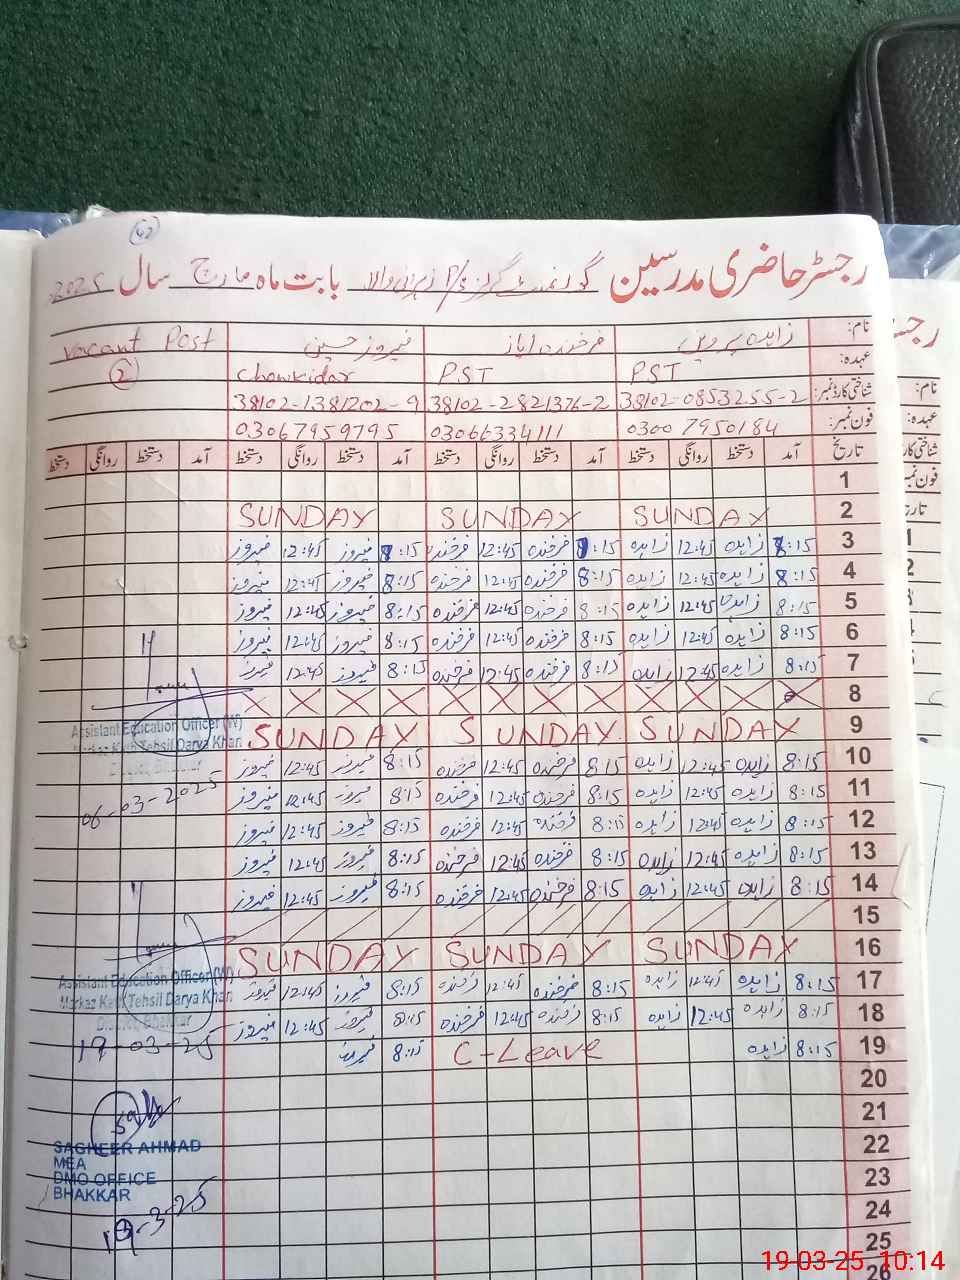 42
رجسٹر حاضری مدرسین گورنمنٹ گرلز P/S بابت ماہ مارچ سال 2025
نام: زاہدہ پروین فرخندہ ایاز فیروز حسین Vacant Post
عہدہ: PST PST Chowkidar 2
شناختی کارڈ نمبر: 38102-0853255-2 38102-2821376-2 38102-1381202-9
فون نمبر: 03007950184 03066334111 03067959795
تاریخ آمد دستخط روانگی دستخط آمد دستخط روانگی دستخط آمد دستخط روانگی دستخط آمد دستخط روانگی دستخط
1
2 SUNDAY SUNDAY SUNDAY
3 8:15 زاہدہ 12:45 زاہدہ 8:15 فرخندہ 12:45 فرخندہ 8:15 فیروز 12:45 فیروز
4 8:15 زاہدہ 12:45 زاہدہ 8:15 فرخندہ 12:45 فرخندہ 8:15 فیروز 12:45 فیروز
5 8:15 زاہدہ 12:45 زاہدہ 8:15 فرخندہ 12:45 فرخندہ 8:15 فیروز 12:45 فیروز
6 8:15 زاہدہ 12:45 زاہدہ 8:15 فرخندہ 12:45 فرخندہ 8:15 فیروز 12:45 فیروز
7 8:15 زاہدہ 12:45 زاہدہ 8:15 فرخندہ 12:45 فرخندہ 8:15 فیروز 12:45 فیروز
8 X X X X X X X X X X X X
9 SUNDAY SUNDAY SUNDAY
Assistant Education Officer (W)
Markaz Tehsil Darya Khan
District Bhakkar
06-03-2025
10 8:15 زاہدہ 12:45 زاہدہ 8:15 فرخندہ 12:45 فرخندہ 8:15 فیروز 12:45 فیروز
11 8:15 زاہدہ 12:45 زاہدہ 8:15 فرخندہ 12:45 فرخندہ 8:15 فیروز 12:45 فیروز
12 8:15 زاہدہ 12:45 زاہدہ 8:15 فرخندہ 12:45 فرخندہ 8:15 فیروز 12:45 فیروز
13 8:15 زاہدہ 12:45 زاہدہ 8:15 فرخندہ 12:45 فرخندہ 8:15 فیروز 12:45 فیروز
14 8:15 زاہدہ 12:45 زاہدہ 8:15 فرخندہ 12:45 فرخندہ 8:15 فیروز 12:45 فیروز
15
16 SUNDAY SUNDAY SUNDAY
17 8:15 زاہدہ 12:45 زاہدہ 8:15 فرخندہ 12:45 فرخندہ 8:15 فیروز 12:45 فیروز
18 8:15 زاہدہ 12:45 زاہدہ 8:15 فرخندہ 12:45 فرخندہ 8:15 فیروز 12:45 فیروز
19 8:15 زاہدہ C-Leave 8:15 فیروز
Assistant Education Officer (W)
Markaz Tehsil Darya Khan
District Bhakkar
19-03-25
20
21
22
23
24
25
26
SAGHEER AHMAD
MEA
DMO OFFICE
BHAKKAR
19-3-25
نام:
عہدہ:
فون نمبر
1
2
19-03-25 10:14